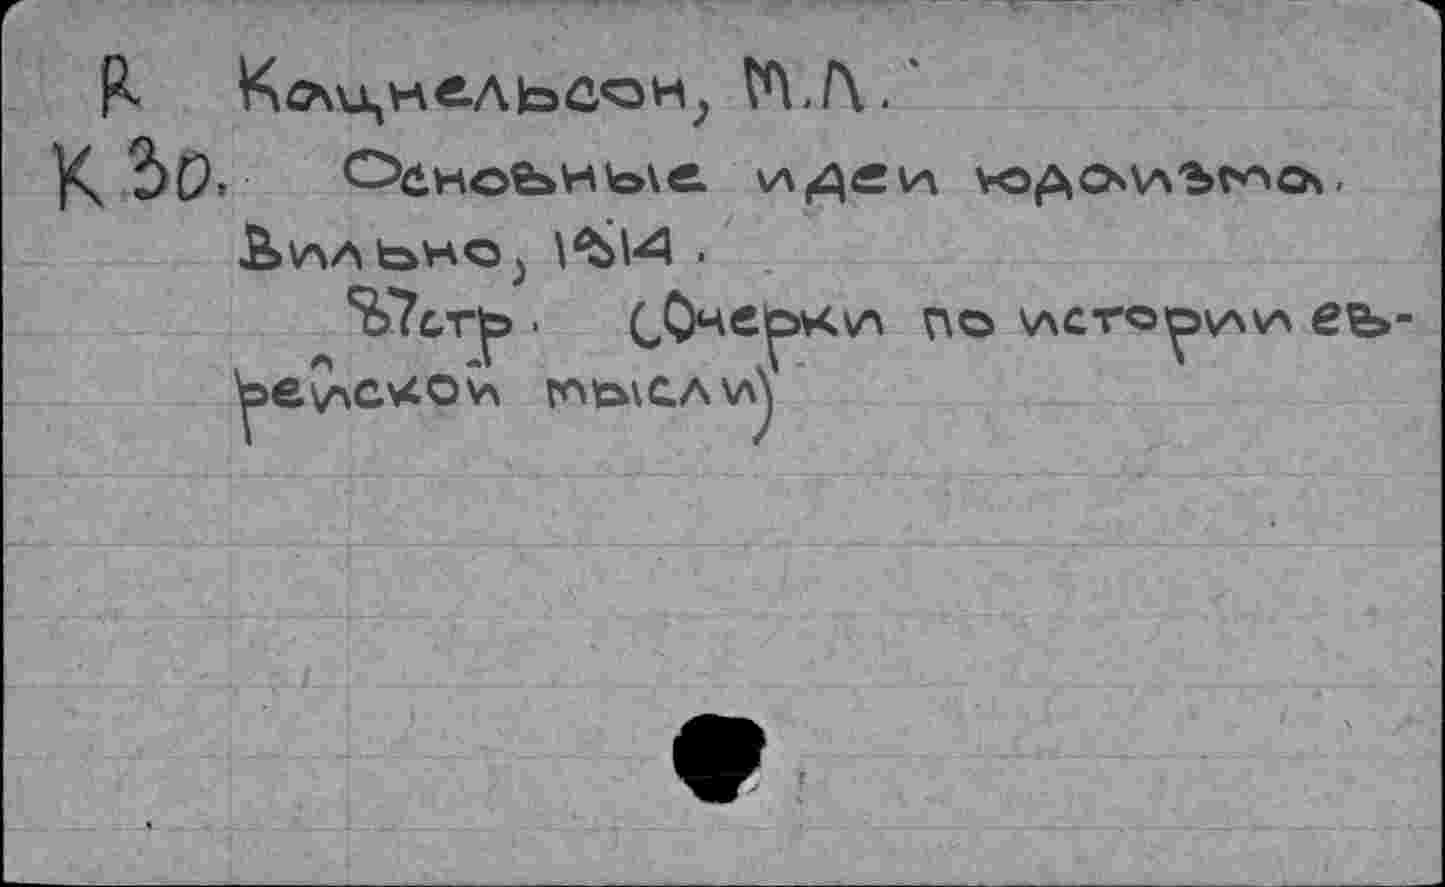 R Кацнельсон, М.Л.
К 30. Основные идеи юдаизма.
Вильно, 1914.
37стр. (Очерки по истории ев-
рейской мысли)